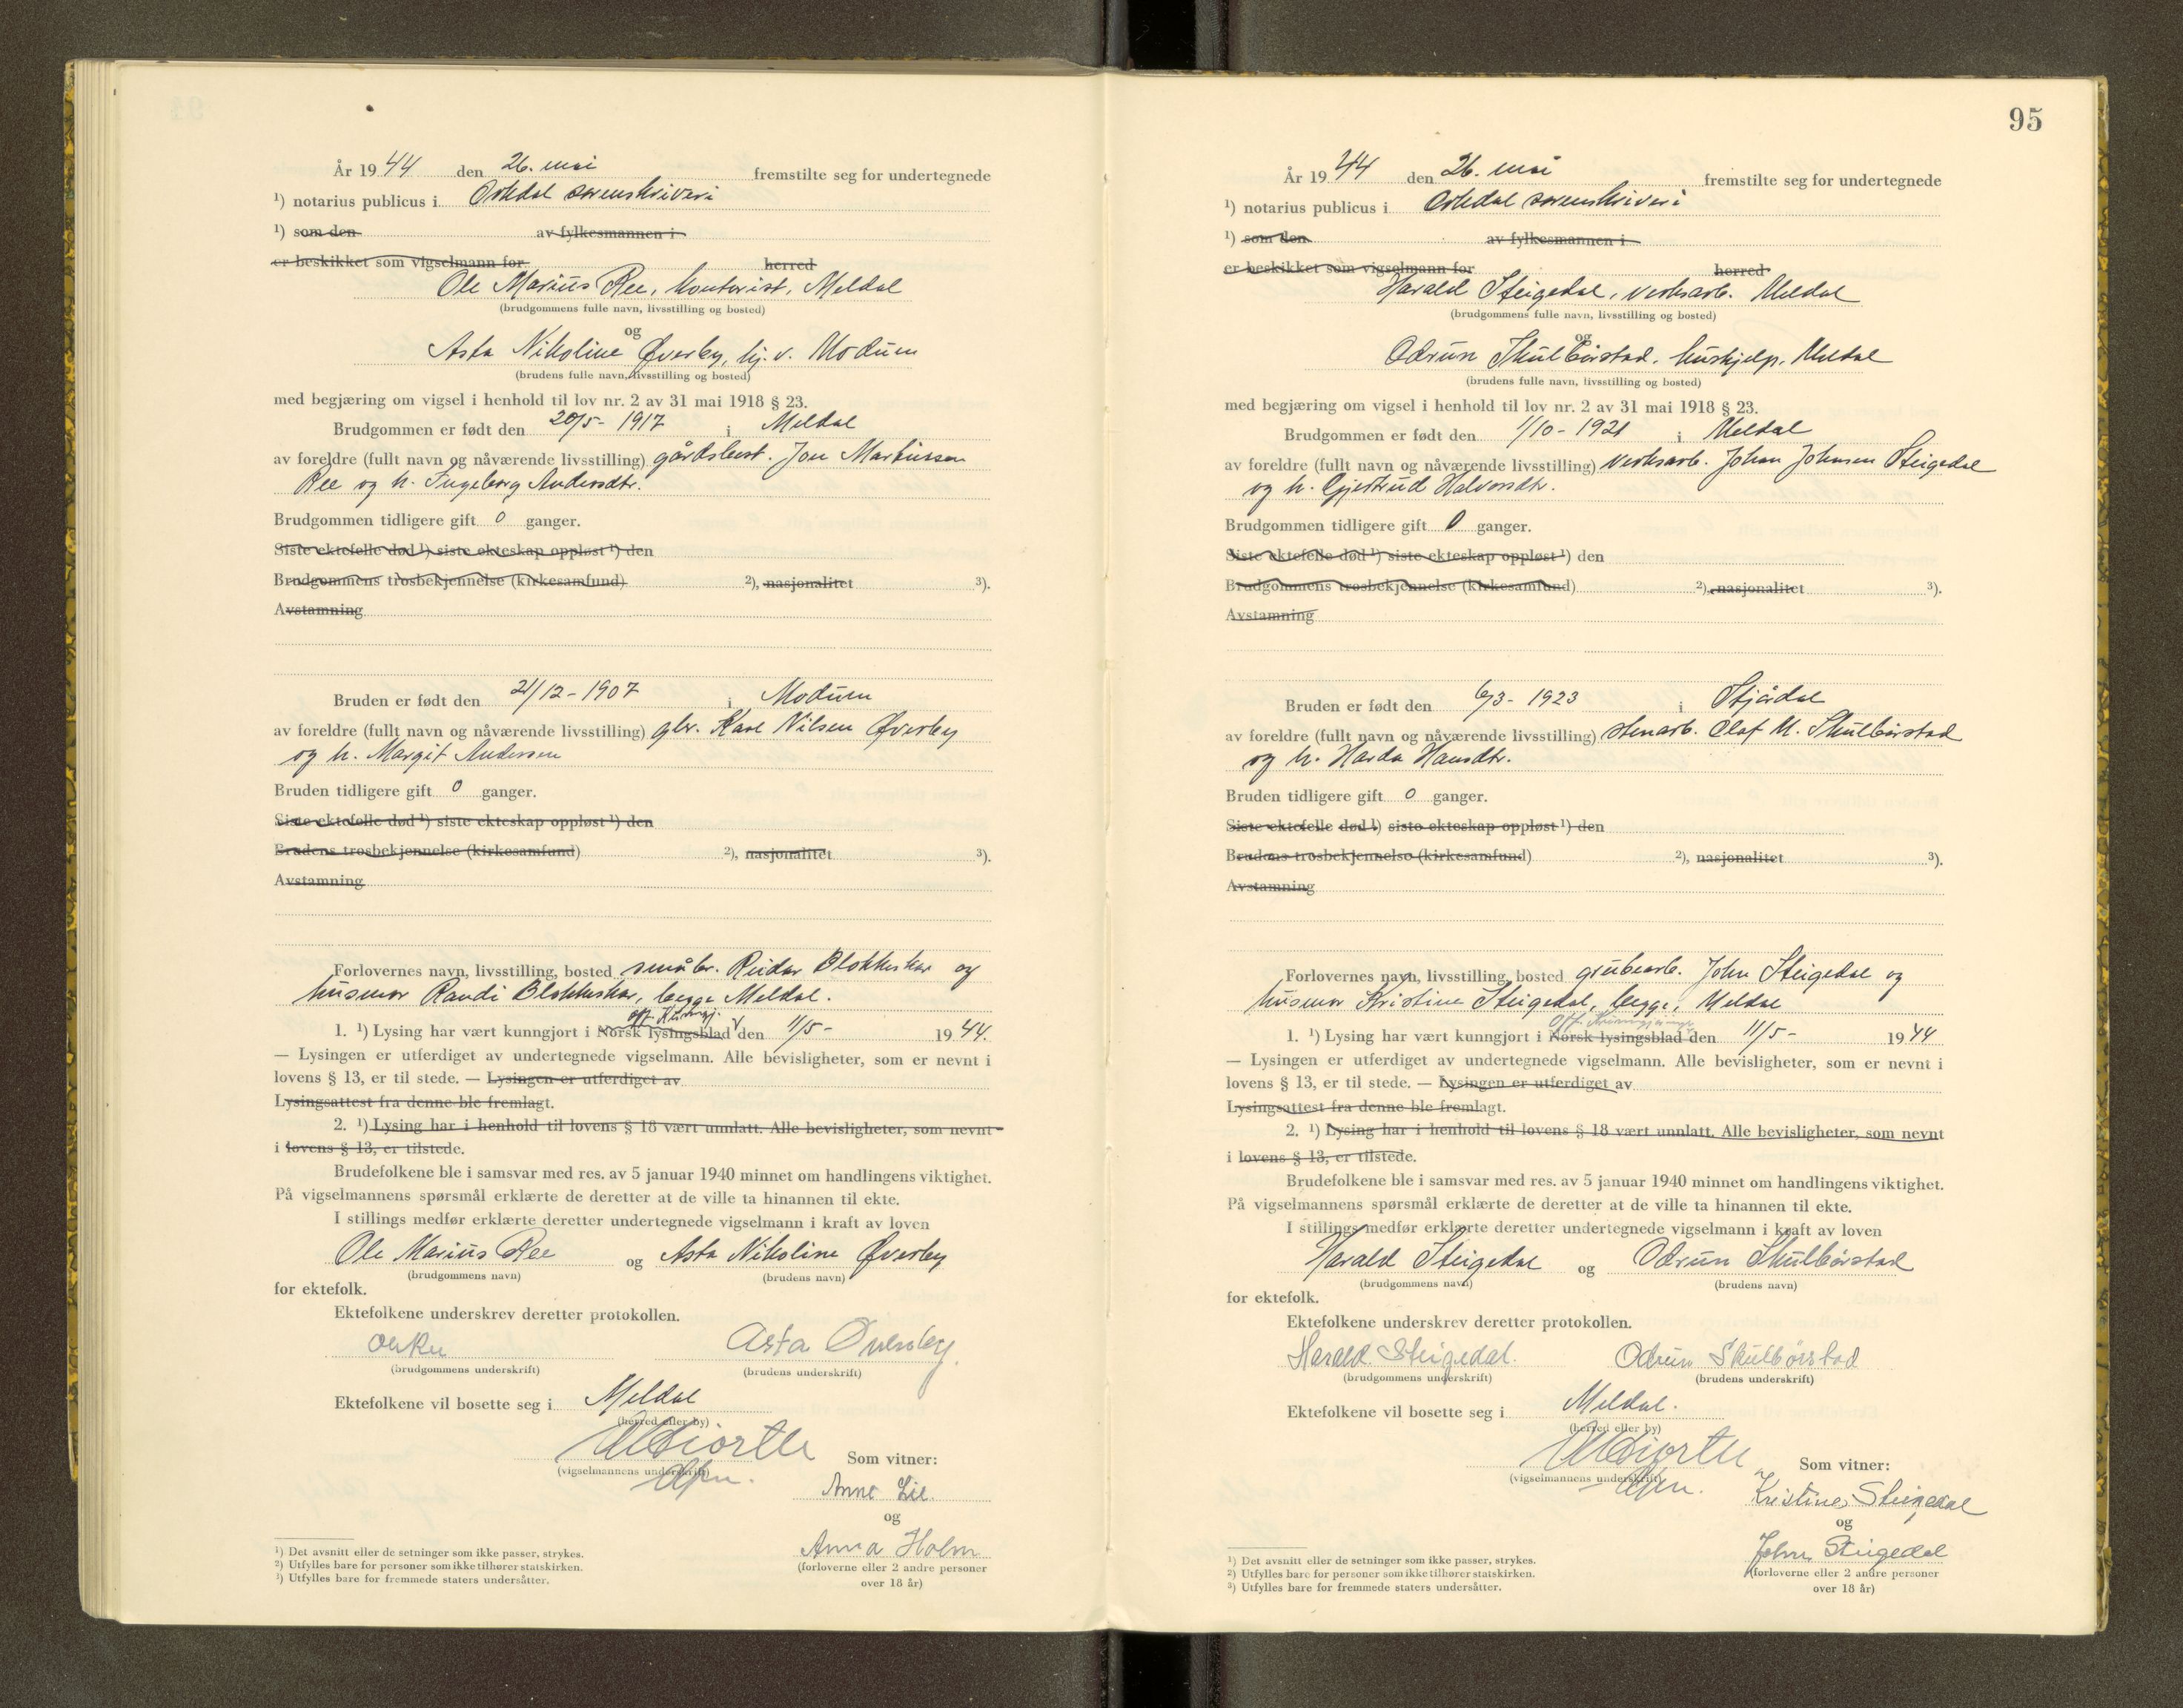 År 1944 den 26. mai fremstilte seg for undertegnede
¹) notarius publicus i Orkdal sorenskriveri
¹) som den av fylkesmannen i
er beskikket som vigselmann for herred
Ole Marius Ree, kontorist, Meldal
(brudgommens fulle navn, livsstilling og bosted)
og
Asta Nikoline Øverby, hj. v. Modum
(brudens fulle navn, livsstilling og bosted)
med begjæring om vigsel i henhold til lov nr. 2 av 31 mai 1918 § 23.
Brudgommen er født den 20/5- 1917 i Meldal
av foreldre (fullt navn og nåværende livsstilling) gårdsbest. Jon Martinssen
Ree og h. Ingeborg Andersdtr.
Brudgommen tidligere gift 0 ganger.
Siste ektefelle død ¹) siste ekteskap oppløst ¹) den
Brudgommens trosbekjennelse (kirkesamfund) ²), nasjonalitet ³).
Avstamning
Bruden er født den 21/12- 1907 i Modum
av foreldre (fullt navn og nåværende livsstilling) gbr. Karl Nilsen Øverby
og h. Margit Andersen
Bruden tidligere gift 0 ganger.
Siste ektefelle død ¹) siste ekteskap oppløst ¹) den
Brudens trosbekjennelse (kirkesamfund) ²), nasjonalitet ³).
Avstamning
Forlovernes navn, livsstilling, bosted småbr. Reidar Blokkskar og
husmor Randi Blokkskar, begge Meldal.
Off. Kunngj.
1. ¹) Lysing har vært kunngjort i Norsk lysingsblad den 11/5- 1944.
— Lysingen er utferdiget av undertegnede vigselmann. Alle bevisligheter, som er nevnt i
lovens § 13, er til stede. — Lysingen er utferdiget av
Lysingsattest fra denne ble fremlagt.
2. ¹) Lysing har i henhold til lovens § 18 vært unnlatt. Alle bevisligheter, som nevnt
i lovens § 13, er tilstede.
Brudefolkene ble i samsvar med res. av 5 januar 1940 minnet om handlingens viktighet.
På vigselmannens spørsmål erklærte de deretter at de ville ta hinannen til ekte.
I stillings medfør erklærte deretter undertegnede vigselmann i kraft av loven
Ole Marius Ree og Asta Nikoline Øverby
(brudgommens navn) (brudens navn)
for ektefolk.
Ektefolkene underskrev deretter protokollen.
Asta Øverby.
(brudgommens underskrift) (brudens underskrift)
Ektefolkene vil bosette seg i Meldal
(herred eller by)
(vigselmannens underskrift)
Som vitner:
Anne Lie.
og
Anna Holm
(forloverne eller 2 andre personer
over 18 år)
¹) Det avsnitt eller de setninger som ikke passer, strykes.
²) Utfylles bare for personer som ikke tilhører statskirken.
³) Utfylles bare for fremmede staters undersåtter.
95
År 1944 den 26. mai fremstilte seg for undertegnede
¹) notarius publicus i Orkdal sorenskriveri
¹) som den av fylkesmannen i
er beskikket som vigselmann for herred
Harald Steigedal, verksarb. Meldal
(brudgommens fulle navn, livsstilling og bosted)
og
Odrun Skulbørstad, hushjelp, Meldal
(brudens fulle navn, livsstilling og bosted)
med begjæring om vigsel i henhold til lov nr. 2 av 31 mai 1918 § 23.
Brudgommen er født den 1/10- 1921 i Meldal
av foreldre (fullt navn og nåværende livsstilling) verksarb. Johan Johnsen Steigedal
og h. Gjertrud Halvorsdtr.
Brudgommen tidligere gift 0 ganger.
Siste ektefelle død ¹) siste ekteskap oppløst ¹) den
Brudgommens trosbekjennelse (kirkesamfund) ²), nasjonalitet ³).
Avstamning
Bruden er født den 6/3- 1923 i Stjørdal
av foreldre (fullt navn og nåværende livsstilling) stenarb. Olaf M. Skulbørstad
og h. Harda Hansdtr.
Bruden tidligere gift 0 ganger.
Siste ektefelle død ¹) siste ekteskap oppløst ¹) den
Brudens trosbekjennelse (kirkesamfund) ²), nasjonalitet ³).
Avstamning
Forlovernes navn, livsstilling, bosted grubearb. John Steigedal og
husmor Kristine Steigedal, begge, Meldal
Off. Kunngjøringer
1. ¹) Lysing har vært kunngjort i Norsk lysingsblad den 11/5- 1944
— Lysingen er utferdiget av undertegnede vigselmann. Alle bevisligheter, som er nevnt i
lovens § 13, er til stede. — Lysingen er utferdiget av
Lysingsattest fra denne ble fremlagt.
2. ¹) Lysing har i henhold til lovens § 18 vært unnlatt. Alle bevisligheter, som nevnt
i lovens § 13, er tilstede.
Brudefolkene ble i samsvar med res. av 5 januar 1940 minnet om handlingens viktighet.
På vigselmannens spørsmål erklærte de deretter at de ville ta hinannen til ekte.
I stillings medfør erklærte deretter undertegnede vigselmann i kraft av loven
Harald Steigedal og Odrun Skulbørstad
(brudgommens navn) (brudens navn)
for ektefolk.
Ektefolkene underskrev deretter protokollen.
Harald Steigedal. Odrun Skulbørstad
(brudgommens underskrift) (brudens underskrift)
Ektefolkene vil bosette seg i Meldal.
(herred eller by)
(vigselmannens underskrift)
Som vitner:
Kristine Steigedal
og
John Steigedal
(forloverne eller 2 andre personer
over 18 år)
¹) Det avsnitt eller de setninger som ikke passer, strykes.
²) Utfylles bare for personer som ikke tilhører statskirken.
³) Utfylles bare for fremmede staters undersåtter.